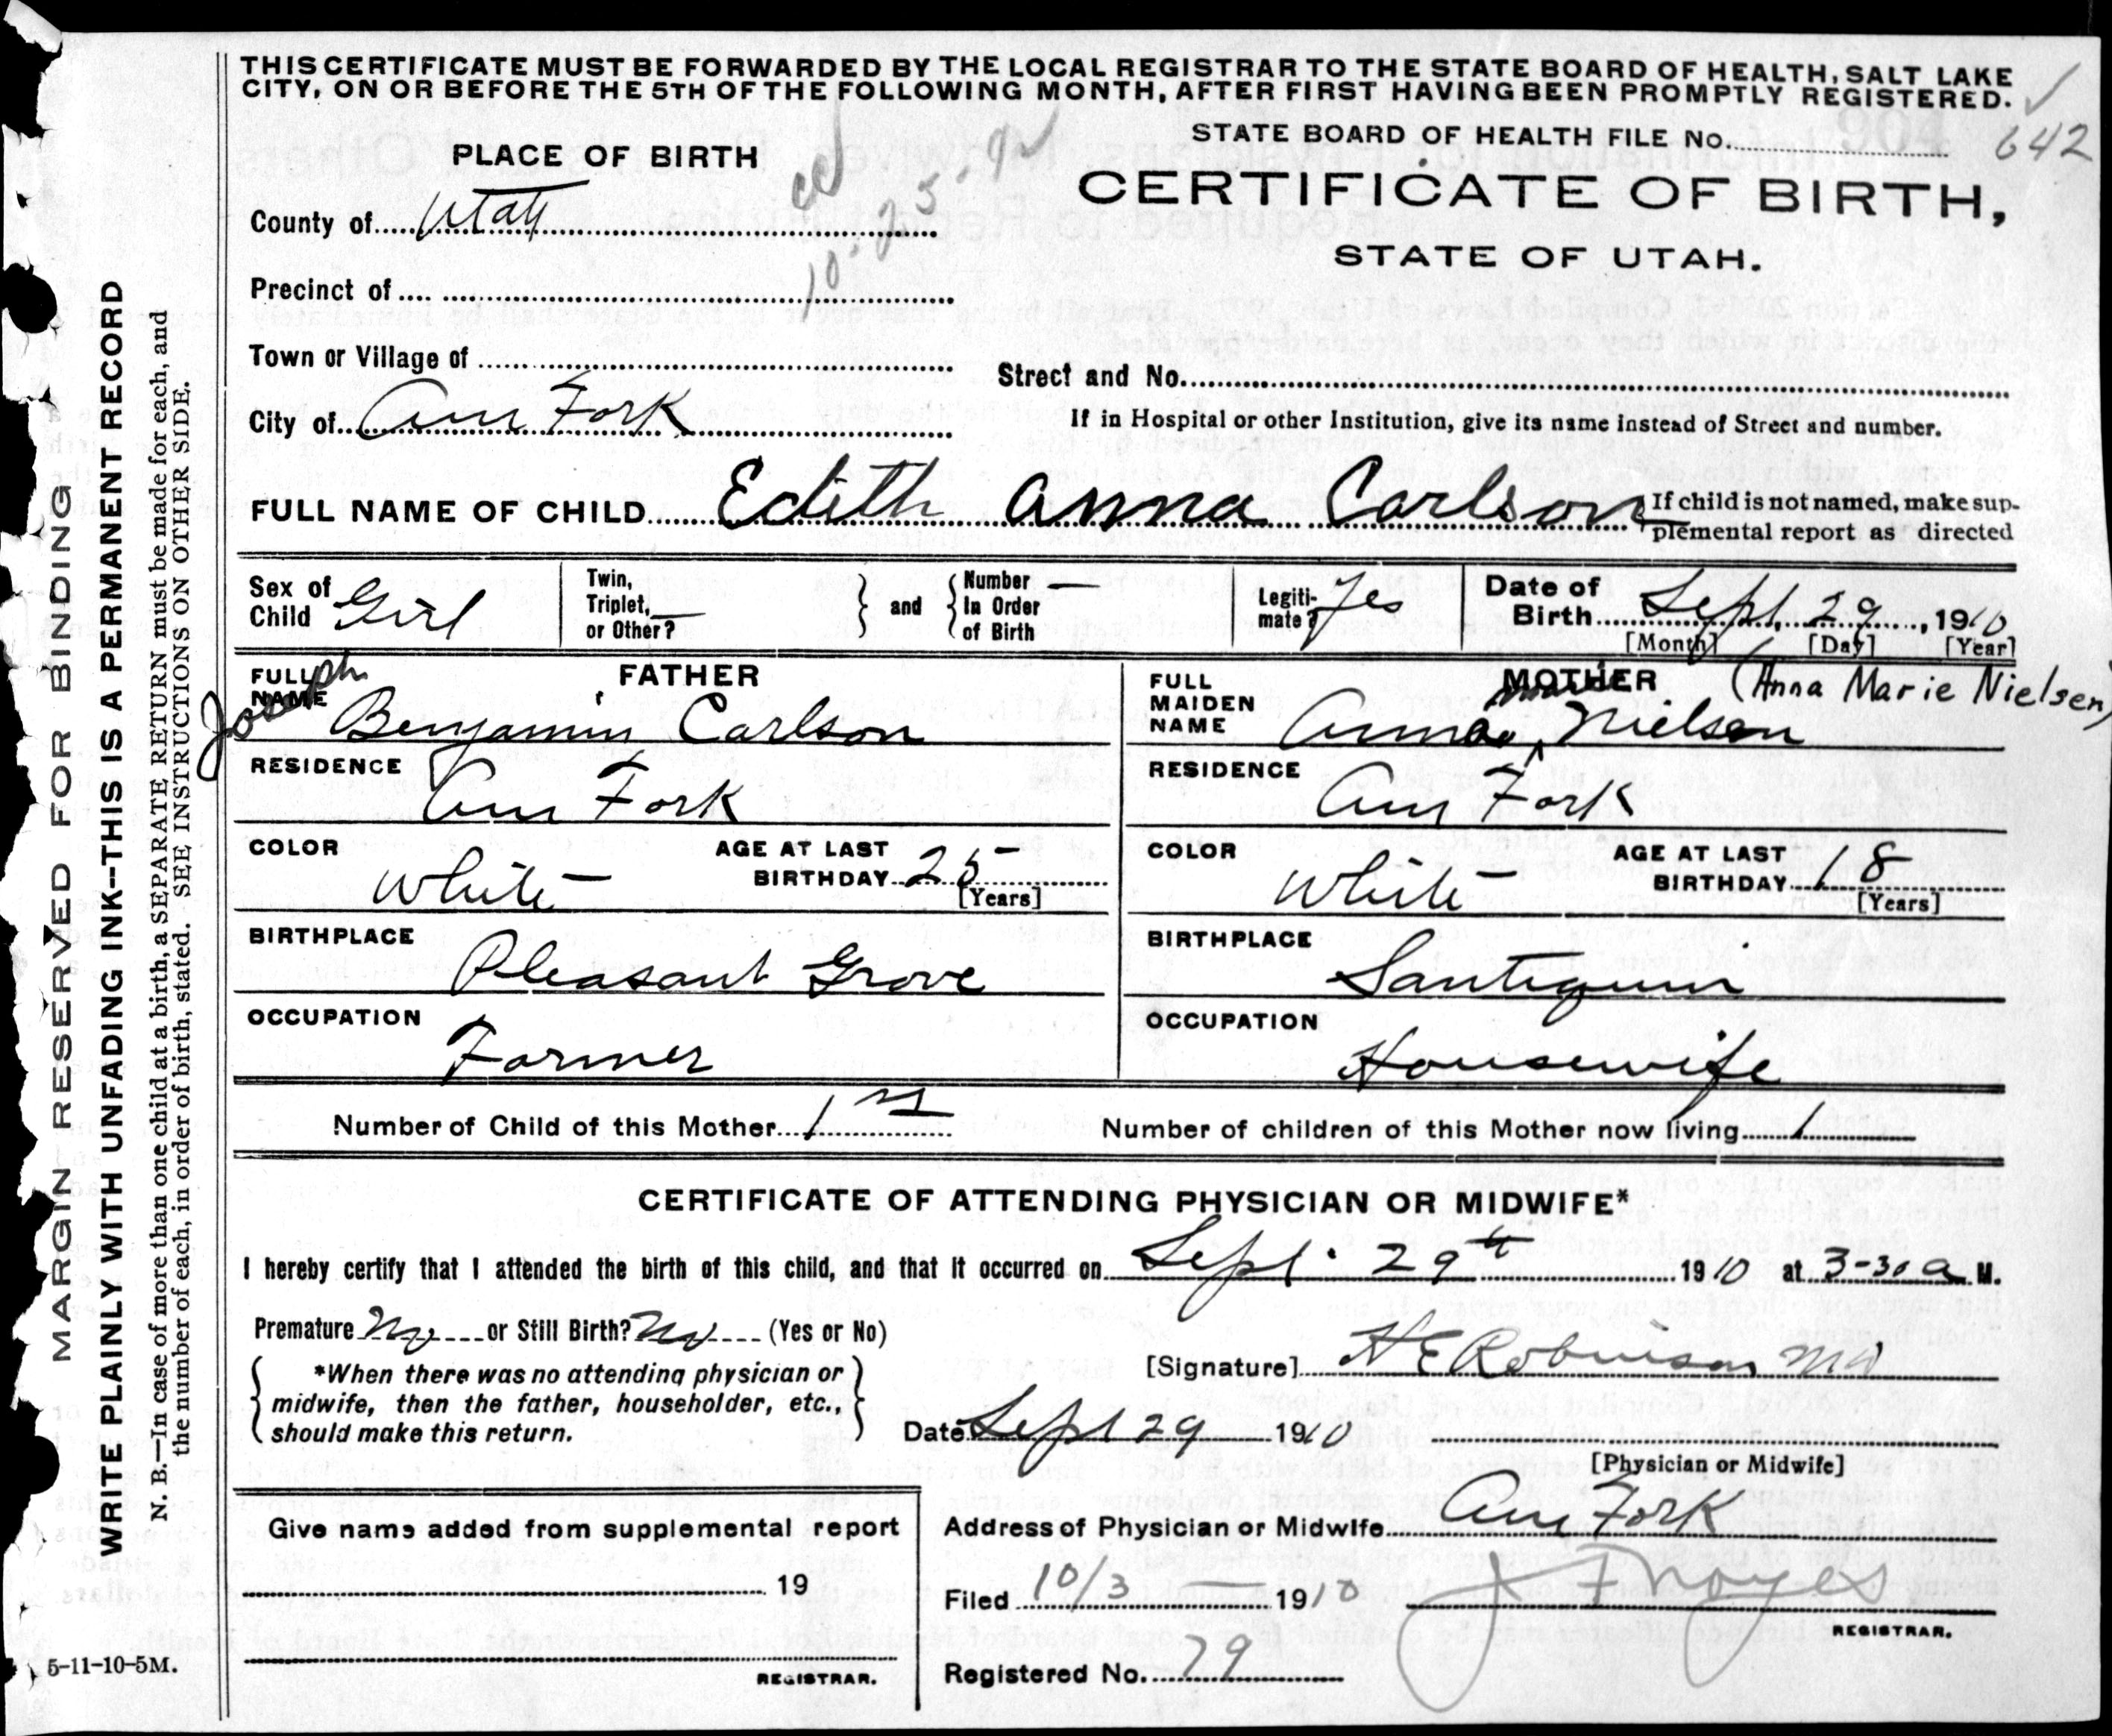 THIS CERTIFICATE MUST BE FORWARDED BY THE LOCAL REGISTRAR TO THE STATE BOARD OF HEALTH, SALT LAKE
CITY, ON OR BEFORE THE 5TH OF THE FOLLOWING MONTH, AFTER FIRST HAVING BEEN PROMPTLY REGISTERED.
STATE BOARD OF HEALTH FILE No. 904 642
PLACE OF BIRTH
CERTIFICATE OF BIRTH,
STATE OF UTAH.
County of Utah
Precinct of
Town or Village of
Street and No.
City of Am Fork
If in Hospital or other Institution, give its name instead of Street and number.
FULL NAME OF CHILD Edith Anna Carlson
If child is not named, make sup-
plemental report as directed
Sex of Child Girl
Twin, Triplet, or Other? —
and
Number In Order of Birth —
Legiti-mate? Yes
Date of Birth Sept. 29, 1910
[Month] [Day] [Year]
FATHER
FULL NAME Joseph Benjamin Carlson
RESIDENCE Am Fork
COLOR White
AGE AT LAST BIRTHDAY 25 [Years]
BIRTHPLACE Pleasant Grove
OCCUPATION Farmer
MOTHER (Anna Marie Nielsen)
FULL MAIDEN NAME Anna Marie Nielsen
RESIDENCE Am Fork
COLOR White
AGE AT LAST BIRTHDAY 18 [Years]
BIRTHPLACE Santiquin
OCCUPATION Housewife
Number of Child of this Mother 1st
Number of children of this Mother now living 1
CERTIFICATE OF ATTENDING PHYSICIAN OR MIDWIFE*
I hereby certify that I attended the birth of this child, and that it occurred on Sept. 29th 1910 at 3-30 a M.
Premature No or Still Birth? No (Yes or No)
*When there was no attending physician or
midwife, then the father, householder, etc.,
should make this return.
[Signature] H E Robinson MD
Date Sept 29 1910
[Physician or Midwife]
Give name added from supplemental report
19
REGISTRAR.
Address of Physician or Midwife Am Fork
Filed 10/3 1910
Noyes
REGISTRAR.
Registered No. 79
MARGIN RESERVED FOR BINDING
WRITE PLAINLY WITH UNFADING INK--THIS IS A PERMANENT RECORD
N. B.—In case of more than one child at a birth, a SEPARATE RETURN must be made for each, and
the number of each, in order of birth, stated. SEE INSTRUCTIONS ON OTHER SIDE.
5-11-10-5M.